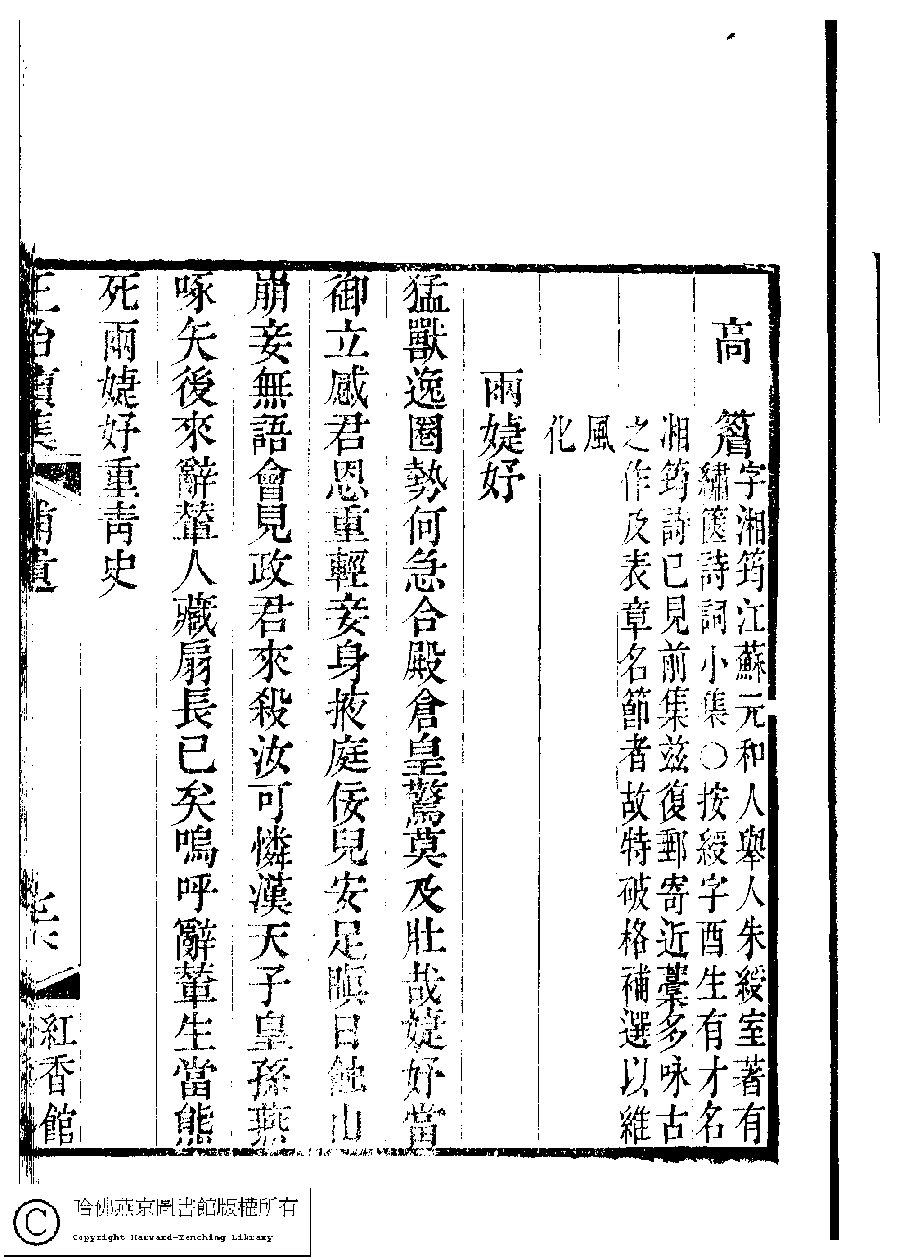 高簪字湘筠江蘇元和人舉人朱綬室著有
繡篋詩詞小集○按綬字酉生有才名
湘筠詩已見前集茲復郵寄近藁多咏古
之作及表章名節者故特破格補選以維
風
化
兩婕妤
猛獸逸圈勢何急合殿倉皇驚莫及壯哉婕妤當
御立感君恩重輕妾身掖庭佞兒安足瞋日蝕山
崩妾無語會見政君來殺汝可憐漢天子皇孫燕
啄矢後來辭輦人藏扇長已矣嗚呼辭輦生當熊
死兩婕妤重青史
補遺
紅香館
哈佛燕京圖書館版權所有
Copyright Harvard-Yenching Library